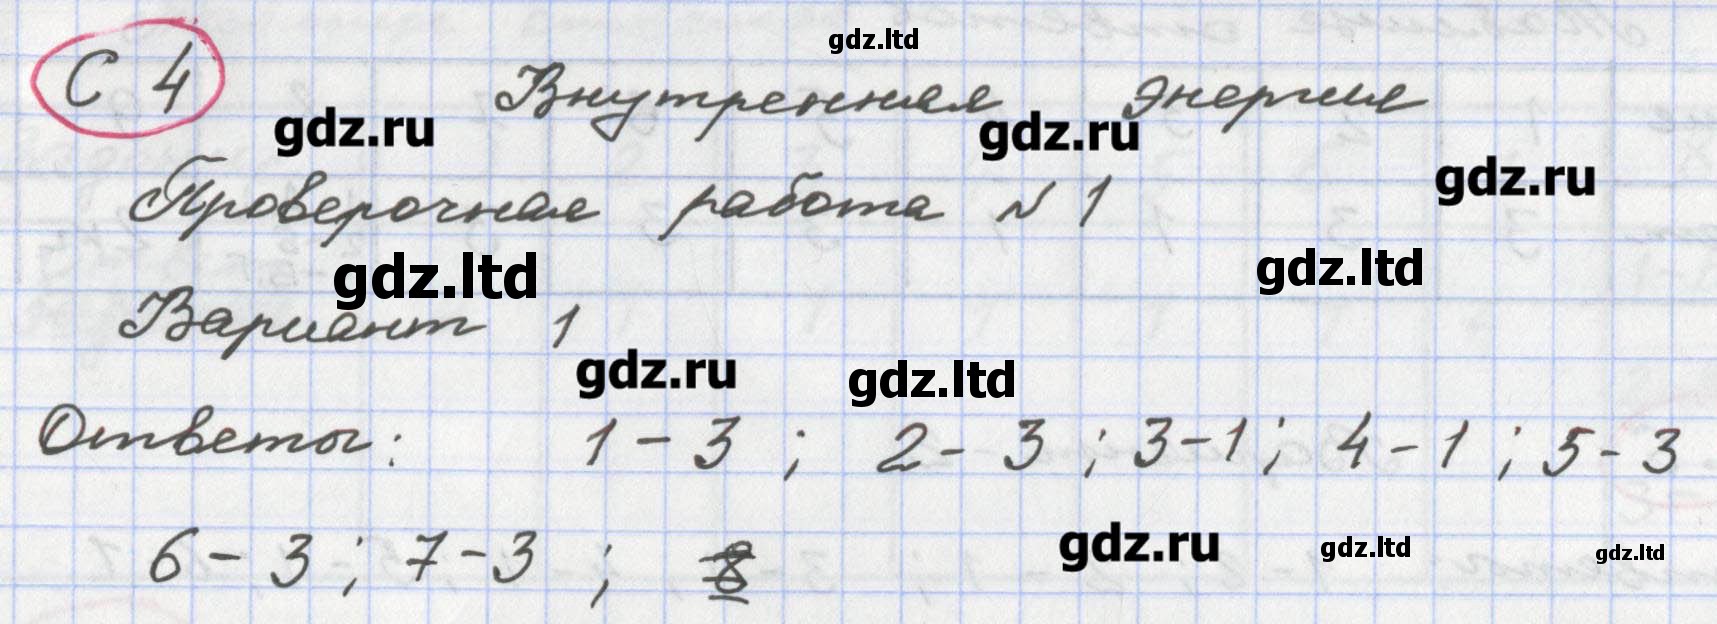 gdz.ltd
С 4 Внутренная энергия
gdz.ru gdz.ru
gdz.ru
Проверочная работа № 1
gdz.ltd gdz.ltd
Вариант 1
gdz.ru gdz.ltd
Ответы: 1-3; 2-3; 3-1; 4-1; 5-3
6-3; 7-3;
gdz.ru gdz.ltd gdz.ltd